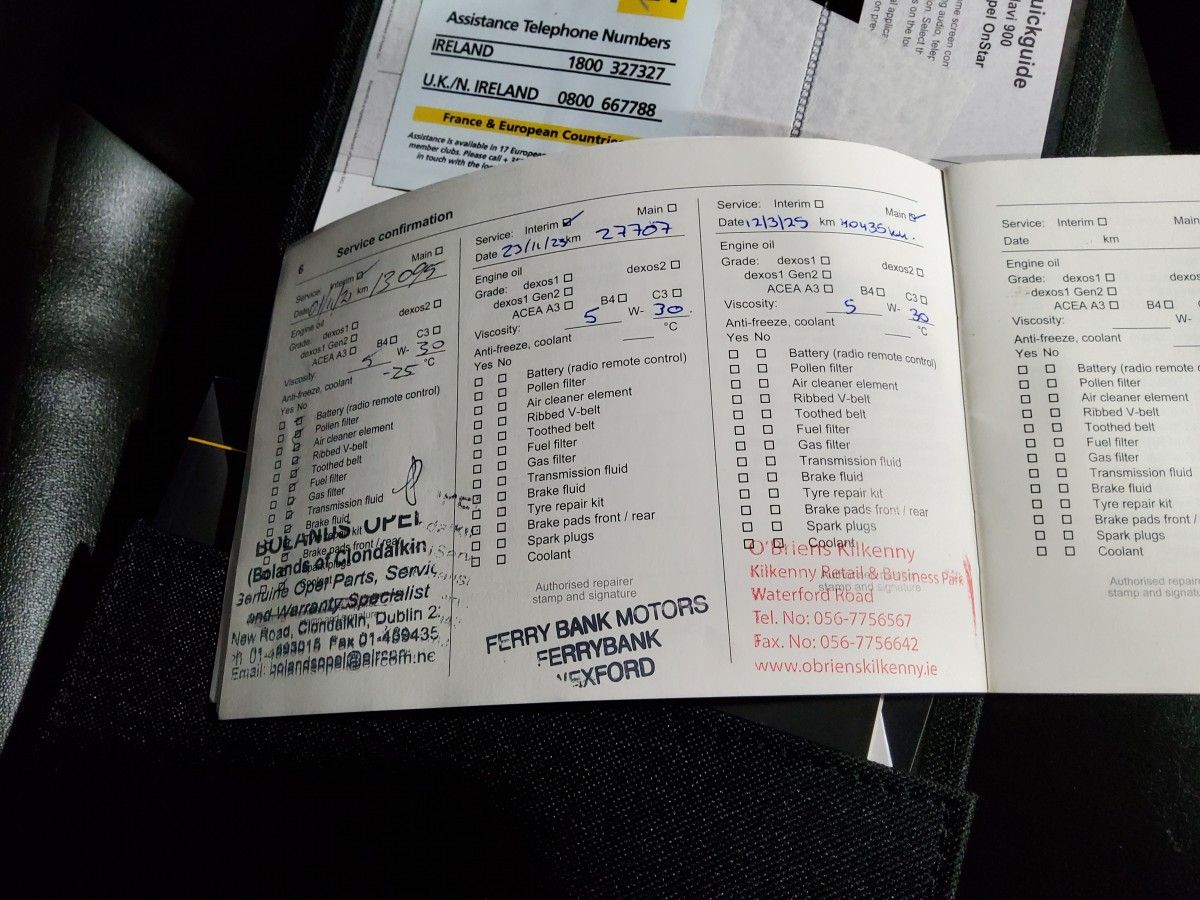 Assistance Telephone Numbers
IRELAND 1800 327327
U.K./N. IRELAND 0800 667788
France & European Countrie
Assistance is available in 17 Europe
member clubs. Please call +
in touch with the
uickguide
Navi 900
pel OnStar
6 Service confirmation
Service: Interim ☑ Main ☐
Date km 13095
Engine oil
Grade: dexos1 ☐ dexos2 ☐
dexos1 Gen2 ☐
ACEA A3 ☐ B4 ☐ C3 ☐
Viscosity: 5 W- 30
Anti-freeze, coolant -25 °C
Yes No
Battery (radio remote control)
Pollen filter
Air cleaner element
Ribbed V-belt
Toothed belt
Fuel filter
Gas filter
Transmission fluid
Brake fluid
Brake pads front / rear
(Bolands of Clondalkin
Genuine Opel Parts, Servic
and Warranty Specialist
New Road, Clondalkin, Dublin 2
Service: Interim ☑ Main ☐
Date 23/11/23 km 27707
Engine oil
Grade: dexos1 ☐ dexos2 ☐
dexos1 Gen2 ☐
ACEA A3 ☐ B4 ☐ C3 ☐
Viscosity: 5 W- 30
Anti-freeze, coolant °C
Yes No
☐ ☐ Battery (radio remote control)
☐ ☐ Pollen filter
☐ ☐ Air cleaner element
☐ ☐ Ribbed V-belt
☐ ☐ Toothed belt
☐ ☐ Fuel filter
☐ ☐ Gas filter
☐ ☐ Transmission fluid
☐ ☐ Brake fluid
☐ ☐ Tyre repair kit
☐ ☐ Brake pads front / rear
☐ ☐ Spark plugs
☐ ☐ Coolant
Authorised repairer
stamp and signature
FERRY BANK MOTORS
FERRYBANK
WEXFORD
Service: Interim ☐ Main ☑
Date 12/3/25 km 40435km.
Engine oil
Grade: dexos1 ☐ dexos2 ☐
dexos1 Gen2 ☐
ACEA A3 ☐ B4 ☐ C3 ☐
Viscosity: 5 W- 30
Anti-freeze, coolant °C
Yes No
☐ ☐ Battery (radio remote control)
☐ ☐ Pollen filter
☐ ☐ Air cleaner element
☐ ☐ Ribbed V-belt
☐ ☐ Toothed belt
☐ ☐ Fuel filter
☐ ☐ Gas filter
☐ ☐ Transmission fluid
☐ ☐ Brake fluid
☐ ☐ Tyre repair kit
☐ ☐ Brake pads front / rear
☐ ☐ Spark plugs
☐ ☐ Coolant
O'Briens Kilkenny
Kilkenny Retail & Business Park
Waterford Road
Tel. No: 056-7756567
Fax. No: 056-7756642
www.obrienskilkenny.ie
Service: Interim ☐ Main
Date km
Engine oil
Grade: dexos1 ☐
dexos1 Gen2 ☐
ACEA A3 ☐ B4 ☐
Viscosity: W-
Anti-freeze, coolant
Yes No
☐ ☐ Battery (radio remote c
☐ ☐ Pollen filter
☐ ☐ Air cleaner element
☐ ☐ Ribbed V-belt
☐ ☐ Toothed belt
☐ ☐ Fuel filter
☐ ☐ Gas filter
☐ ☐ Transmission fluid
☐ ☐ Brake fluid
☐ ☐ Tyre repair kit
☐ ☐ Brake pads front /
☐ ☐ Spark plugs
☐ ☐ Coolant
Authorised repaire
stamp and signatu